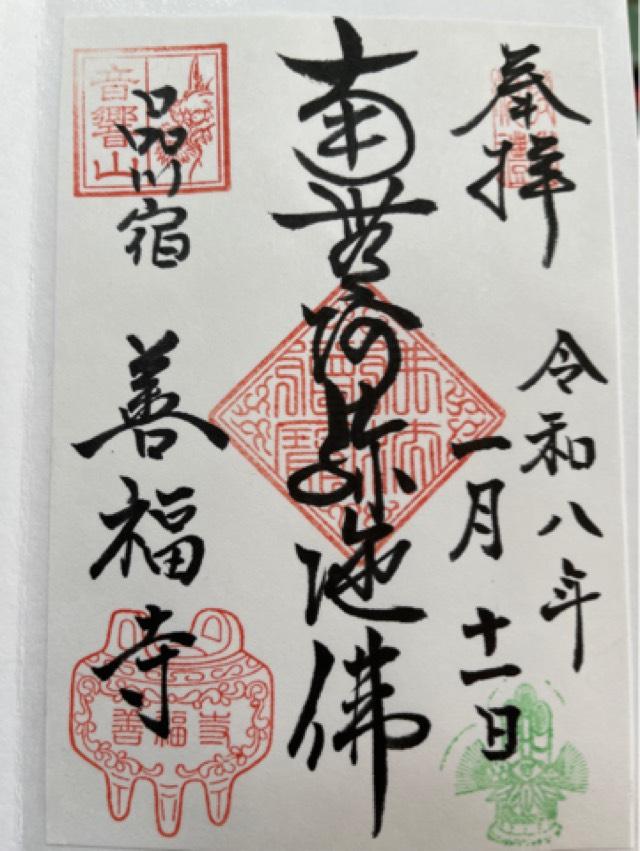 奉拝
令和八年
一月十一日
南無阿弥陀佛
品川宿
善福寺
音響山
佛法僧寳
善福寺